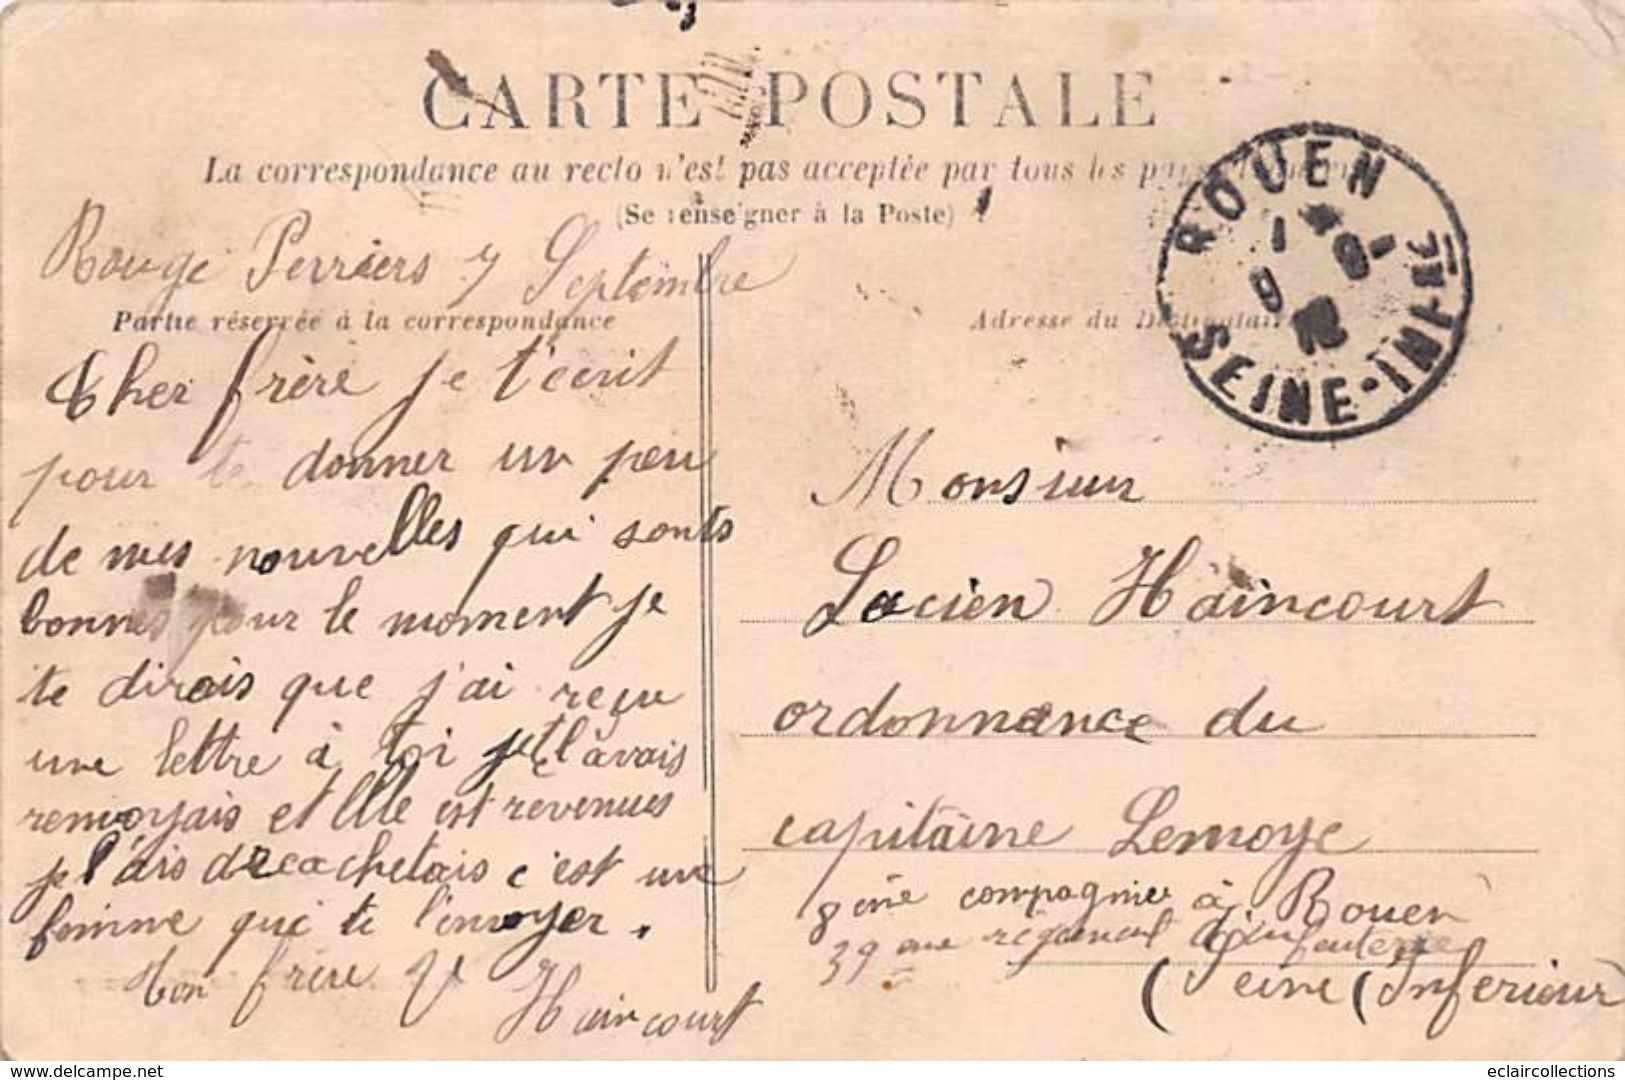 CARTE POSTALE
La correspondance au recto n'est pas acceptée par tous les
(Se renseigner à la Poste)
ROUEN
1
9
SEINE-INF-RE
Rouge Perriers 7 Septembre
Partie réservée à la correspondance
Cher frère je t'écrit
pour te donner un peu
de mes nouvelles qui sonts
bonnes pour le moment je
te dirais que j'ai reçu
une lettre à toi je l'avais
renvoyais et elle est revenues
je l'ais decachetais c'est une
femme qui te l'envoyer.
Ton frère V
Haincourt
Adresse du Destinataire
Monsieur
Lucien Haincourt
ordonnance du
capitaine Lemoye
8ème compagnie à Rouen
39 eme régiment d'infanterie
(Seine (Inferieur
delcampe.net
eclaircollections